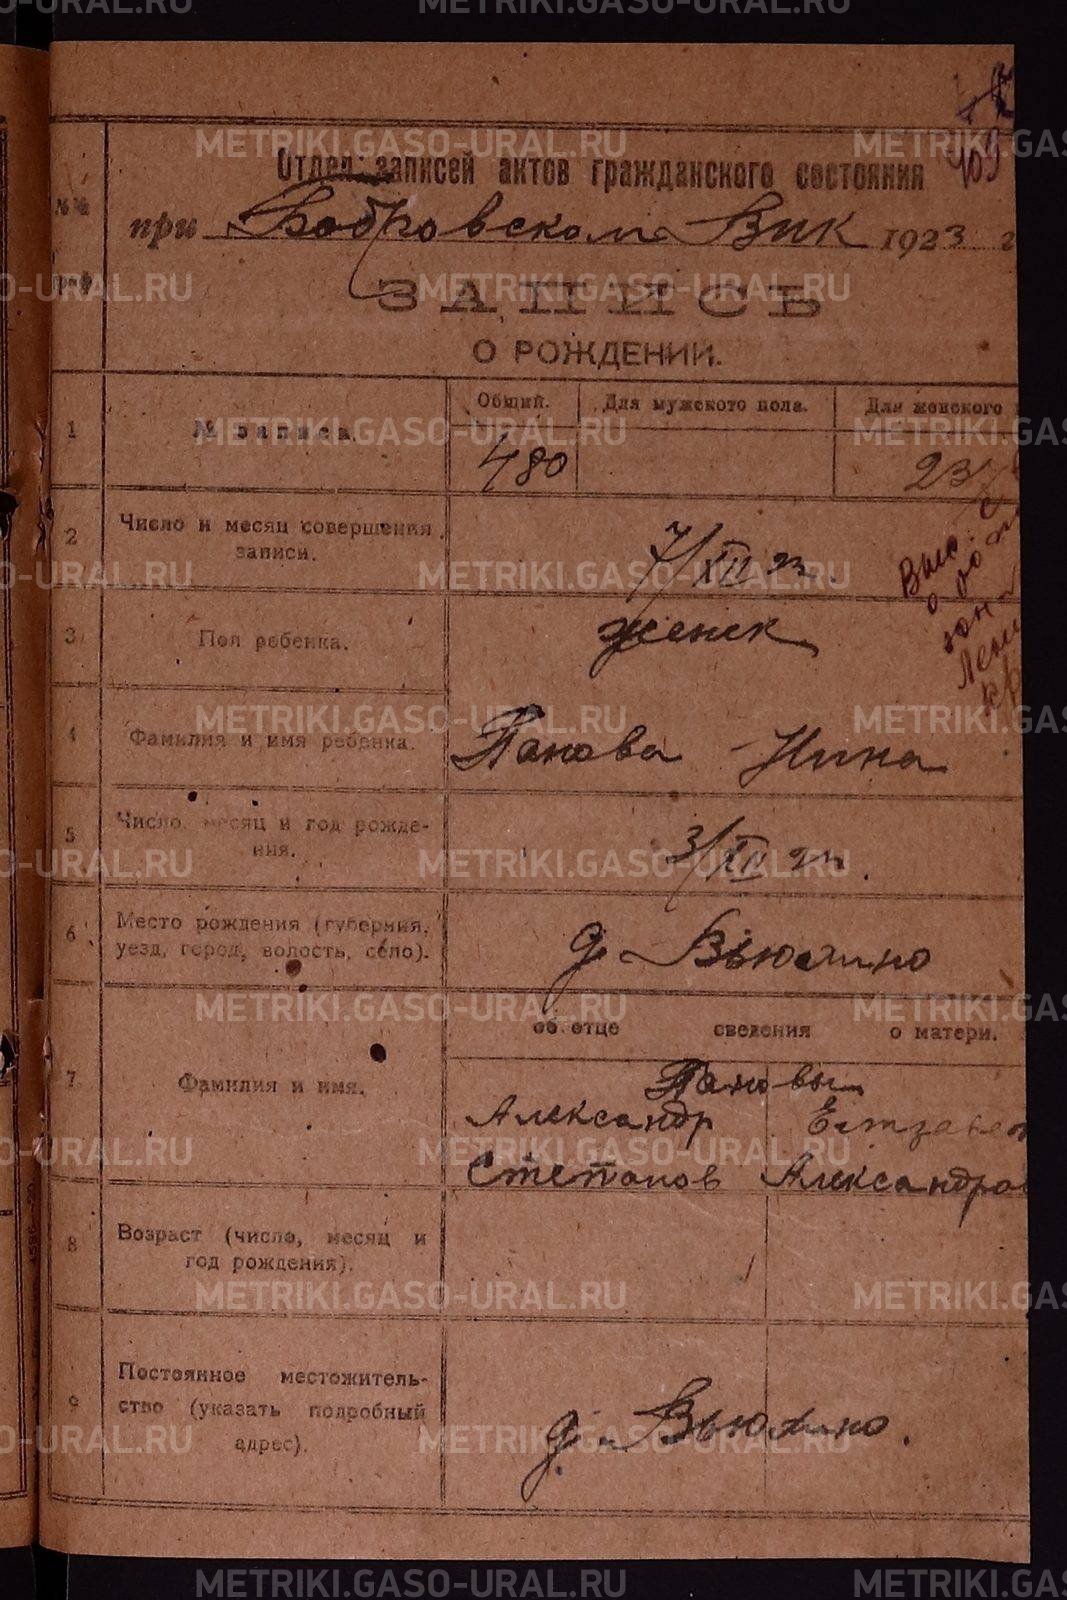 409
Отдел записей актов гражданского состояния
при Бобровском Вик 1923 г
№№
граф
ЗАПИСЬ
О РОЖДЕНИИ.
Общий. Для мужского пола. Для женского
1 № записи.
480 23
2 Число и месяц совершения записи.
7/XII 23.
Выс
3 Пол ребенка.
женск
4 Фамилия и имя ребенка.
Панова Нина
5 Число, месяц и год рожде-
ния.
3/XII 23.
6 Место рождения (губерния,
уезд, город, волость, село).
д. Вьюхино
об отце сведения о матери.
7 Фамилия и имя.
Пановы
Александр Елизавет
Степанов Александров
8 Возраст (число, месяц и
год рождения).
9 Постоянное местожитель-
ство (указать подробный
адрес).
д. Вьюхино.
METRIKI.GASO-URAL.RU